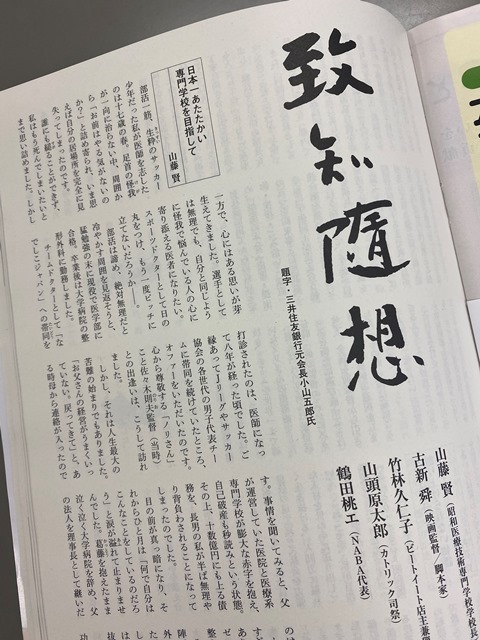 致知随想
題字・三井住友銀行元会長小山五郎氏
山藤 賢(昭和医療技術専門学校学校長
古新 舜(映画監督 脚本家)
竹林久仁子(ビートイート店主兼
山頭原太郎(カトリック司祭)
鶴田桃エ(NABA代表)
日本一あたたかい
専門学校を目指して
山藤 賢
部活一筋、生粋のサッカー
少年だった私が医師を志した
のは十七歳の春。足首の怪我
が一向に治らない中、周囲か
ら「お前はやる気がないの
か?」と詰め寄られ、いま思
えば自分の居場所を完全に見
失ってしまったのです。
誰にも縋ることができず、
私はもう死んでしまいたいと
まで思い詰めました。しかし
一方で、心にはある思いが芽
生えてきました。選手として
は無理でも、自分と同じよう
に怪我で悩んでいる人の心に
寄り添える医者になりたい。
スポーツドクターとして日の
丸をつけ、もう一度ピッチに
立てないだろうか――。
部活は諦め、絶対無理だと
冷やかす周囲を見返そうと、
猛勉強の末に現役で医学部に
合格。卒業後は大学病院の整
形外科に勤務しました。
チームドクターとして「な
でしこジャパン」への帯同を
打診されたのは、医師になっ
て八年が経った頃でした。ご
縁あってJリーグやサッカー
協会の各世代の男子代表チー
ムに帯同を続けていたところ、
心から尊敬する「ノリさん」
こと佐々木則夫監督(当時)
との出逢いは、こうして訪れ
ました。
しかし、それは人生最大の
苦難の始まりでもありました。
「お父さんの経営がうまくいっ
ていない。戻ってきて」と、あ
る時母から連絡が入ったので
す。事情を聞いてみると、父
が運営していた医院と医療系
専門学校が膨大な赤字を抱え、
自己破産も秒読みという状態。
その上、十数億円にも上る債
務を、長男の私が半ば無理や
り背負わされることになって
しまったのでした。
目の前が真っ暗になり、そ
れからひと月は「何で自分は
こんなことをしているのだろ
う」と涙が溢れて止まりませ
んでした。葛藤を抱えたまま
泣く泣く大学病院を辞め、父
の法人を理事長として継いだ